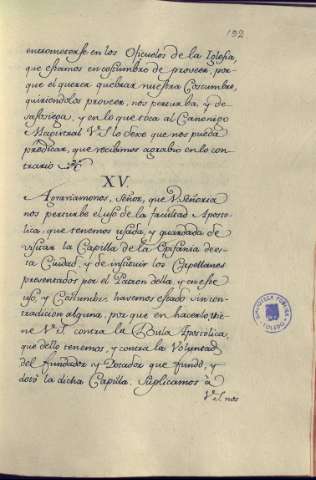 192
entrometerse en los Oficuelos de la Iglesia,
que estamos en costumbre de proveer, por-
que el querer quebrar nuestra Costumbre,
quiriendolos proveer, nos perturba, y de-
sasosiega, y en lo que toca al Canonigo
Magistral V.S. lo deve que nos pueda
predicar, que recibimos agravio en lo con-
trario
XV.
Agraviamonos, Señor, que V. Señoria
nos perturbe el uso de la facultad Aposto-
lica, que tenemos usada, y guardada de
visitar la Capilla de la Epifania de es-
ta Ciudad, y de instituir los Capellanes
presentados por el Patron della, y en este
uso, y Costumbre havemos estado sin con-
tradicion alguna, por que en hacerlo, vie-
ne V.S. contra la Bula Apostolica,
que dello tenemos, y contra la Voluntad
del fundador y Dotador que fundó, y
dotó la dicha Capilla. Suplicamos à
V.S. nos
BIBLIOTECA PUBLICA
TOLEDO